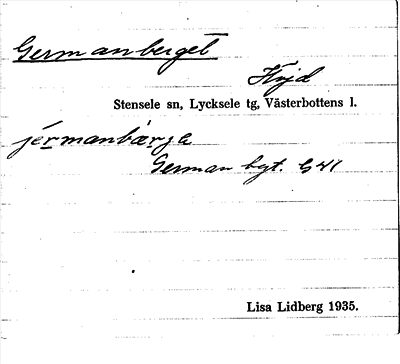 Germanberget
Höjd
Stensele sn, Lycksele tg, Västerbottens l.
jérmanbærja
German bgt. G41
Lisa Lidberg 1935.